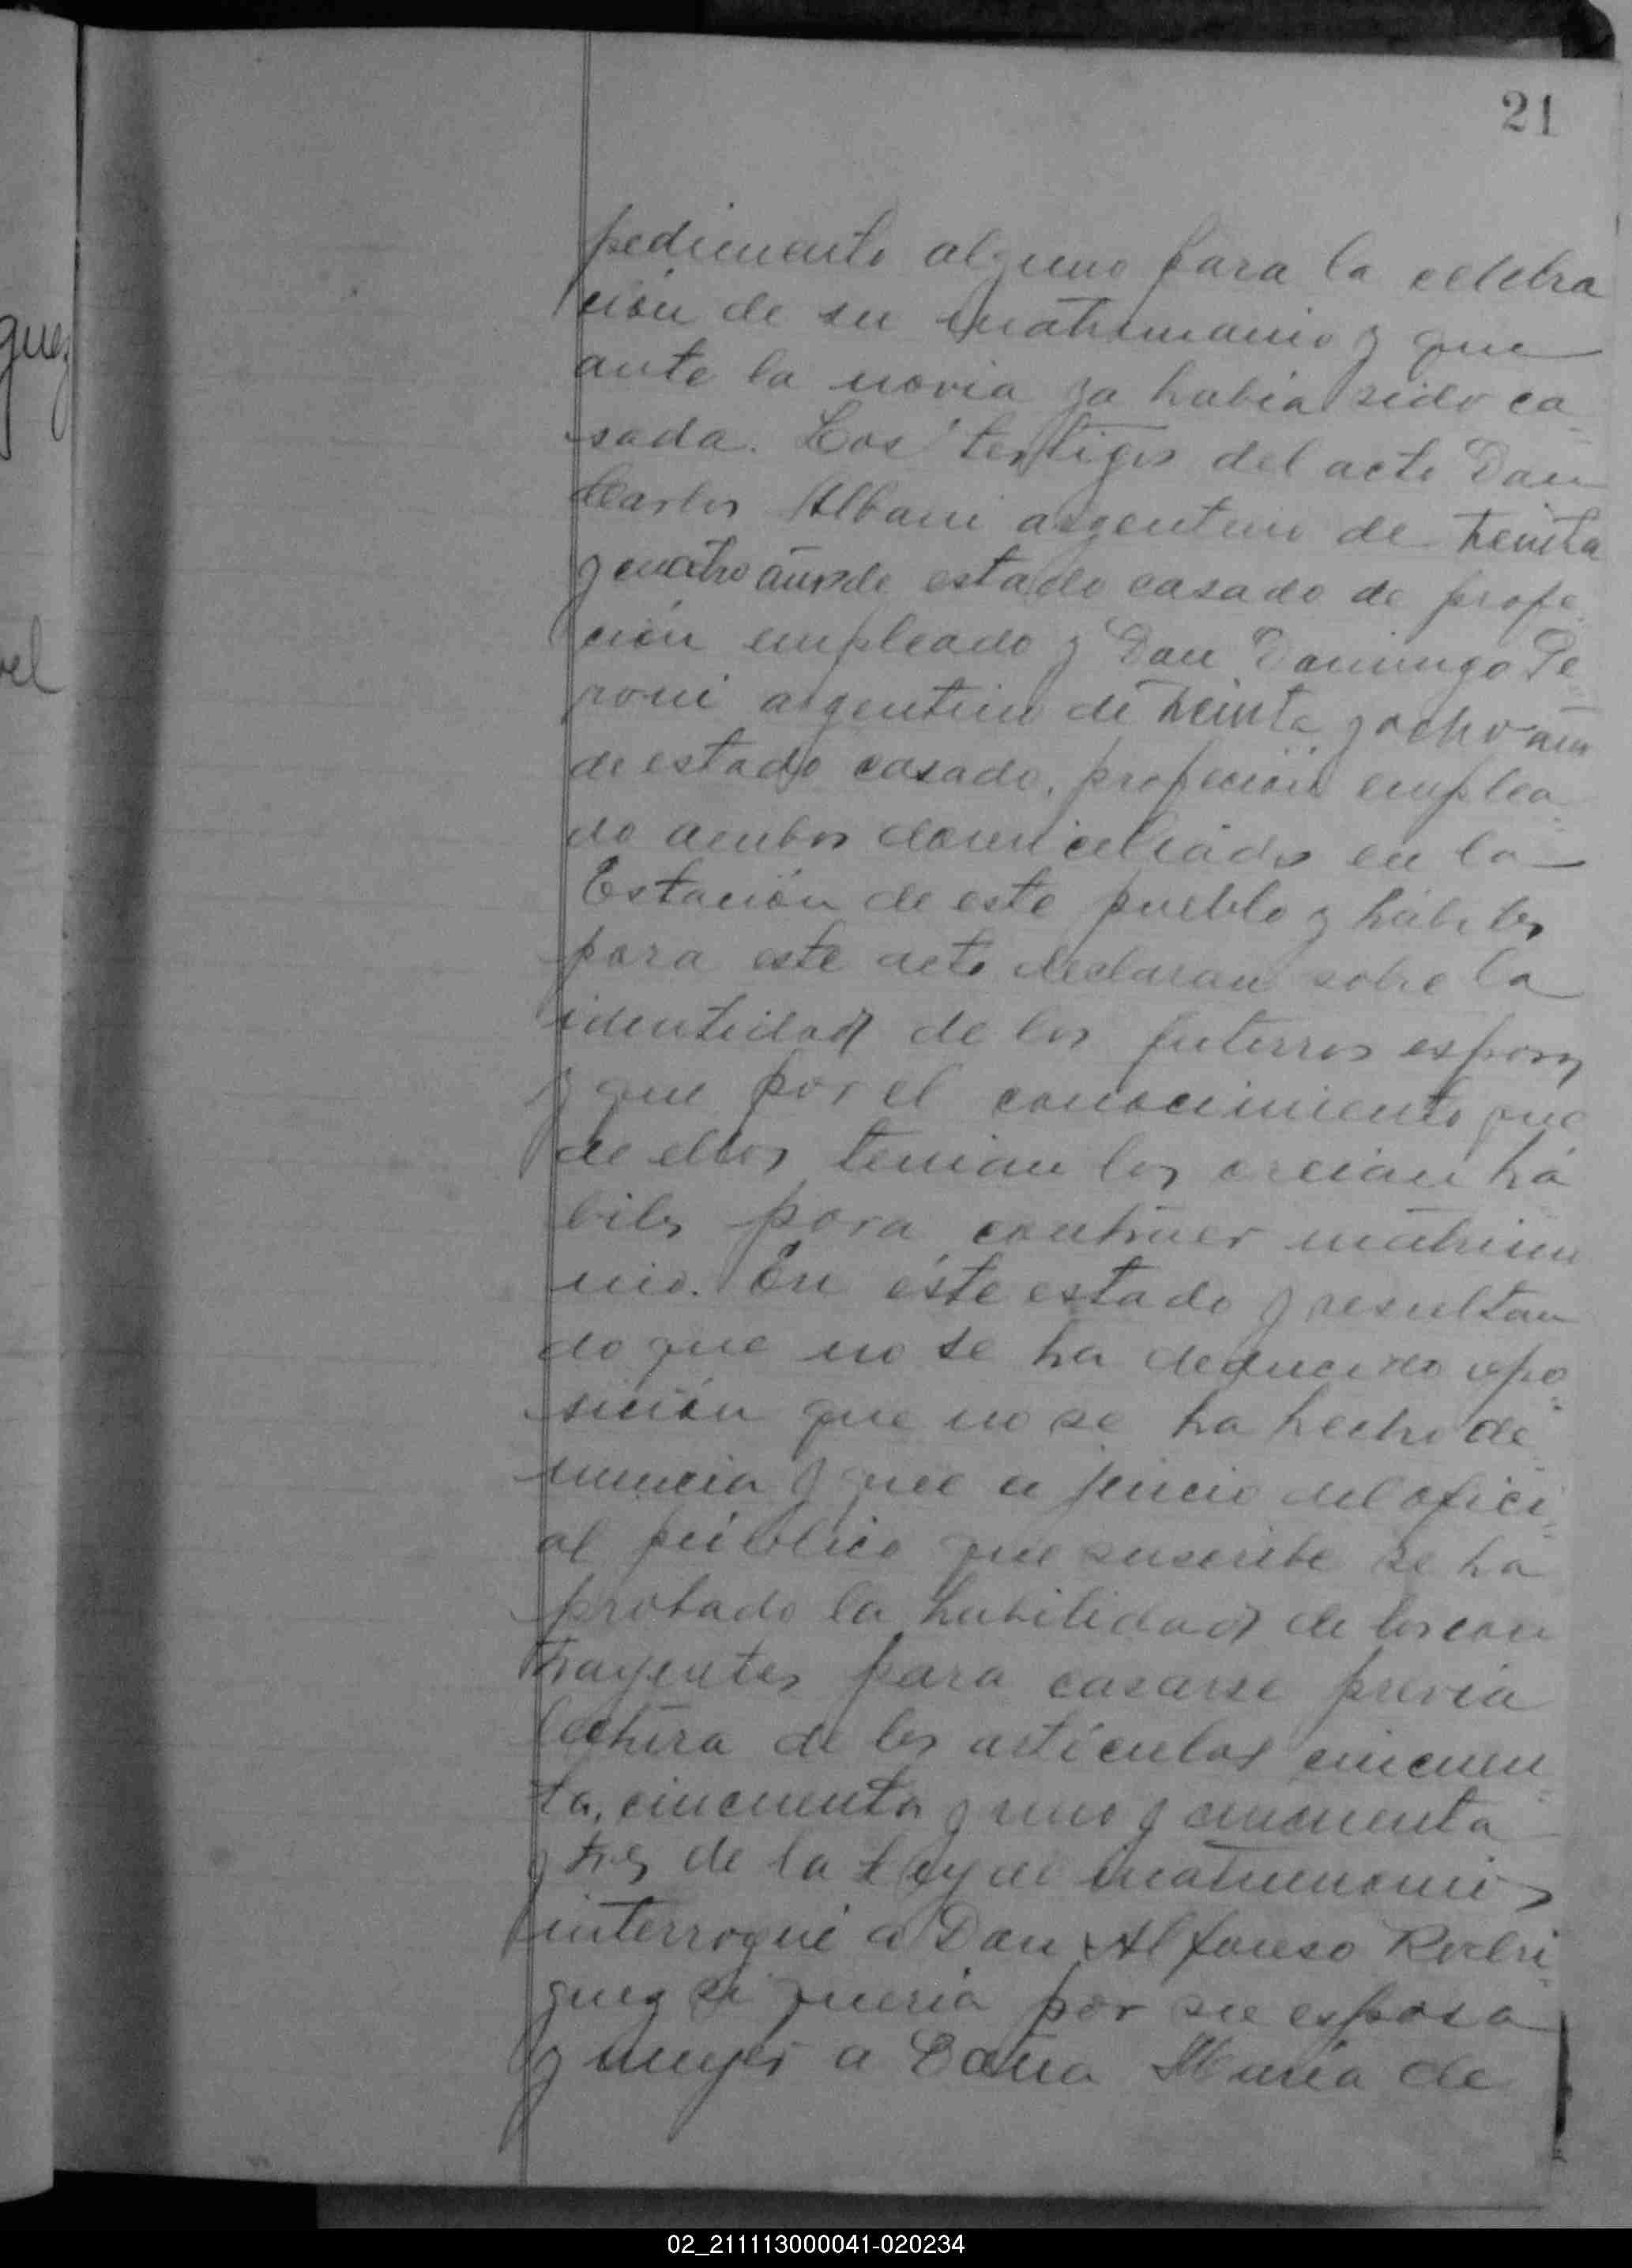 21
pedimento alguno para la celebra
ción de su matrimonio y que
ante la novia ya había sido ca-
sada. Los testigos del acto Don
Carlos Albani argentino de treinta
y cuatro años de estado casado de profe-
ción empleado y Don Domingo Pe-
roni argentino de treinta y ocho años
de estado casado, profeción emplea-
do ambos domiciliados en la
Estación de este pueblo y hábiles
para este acto declaran sobre la
identidad de los futuros esposos
y que por el conocimiento que
de ellos tenian los creian há
biles para contraer matrimo
nio. En éste estado y resultan
do que no se ha deducido opo-
sición que no se ha hecho de-
nuncia y que a juicio del ofici-
al público que suscribe se ha
probado la habilidad de los con
trayentes para casarse previa
lectura de los artículos cincuen-
ta, cincuenta y uno y cincuenta
y tres de la Ley de matrimonio
interrogué a Don Alfonso Rodri-
guez si queria por su esposa
y mujer a Doña María de
guez
el
02_211113000041-020234